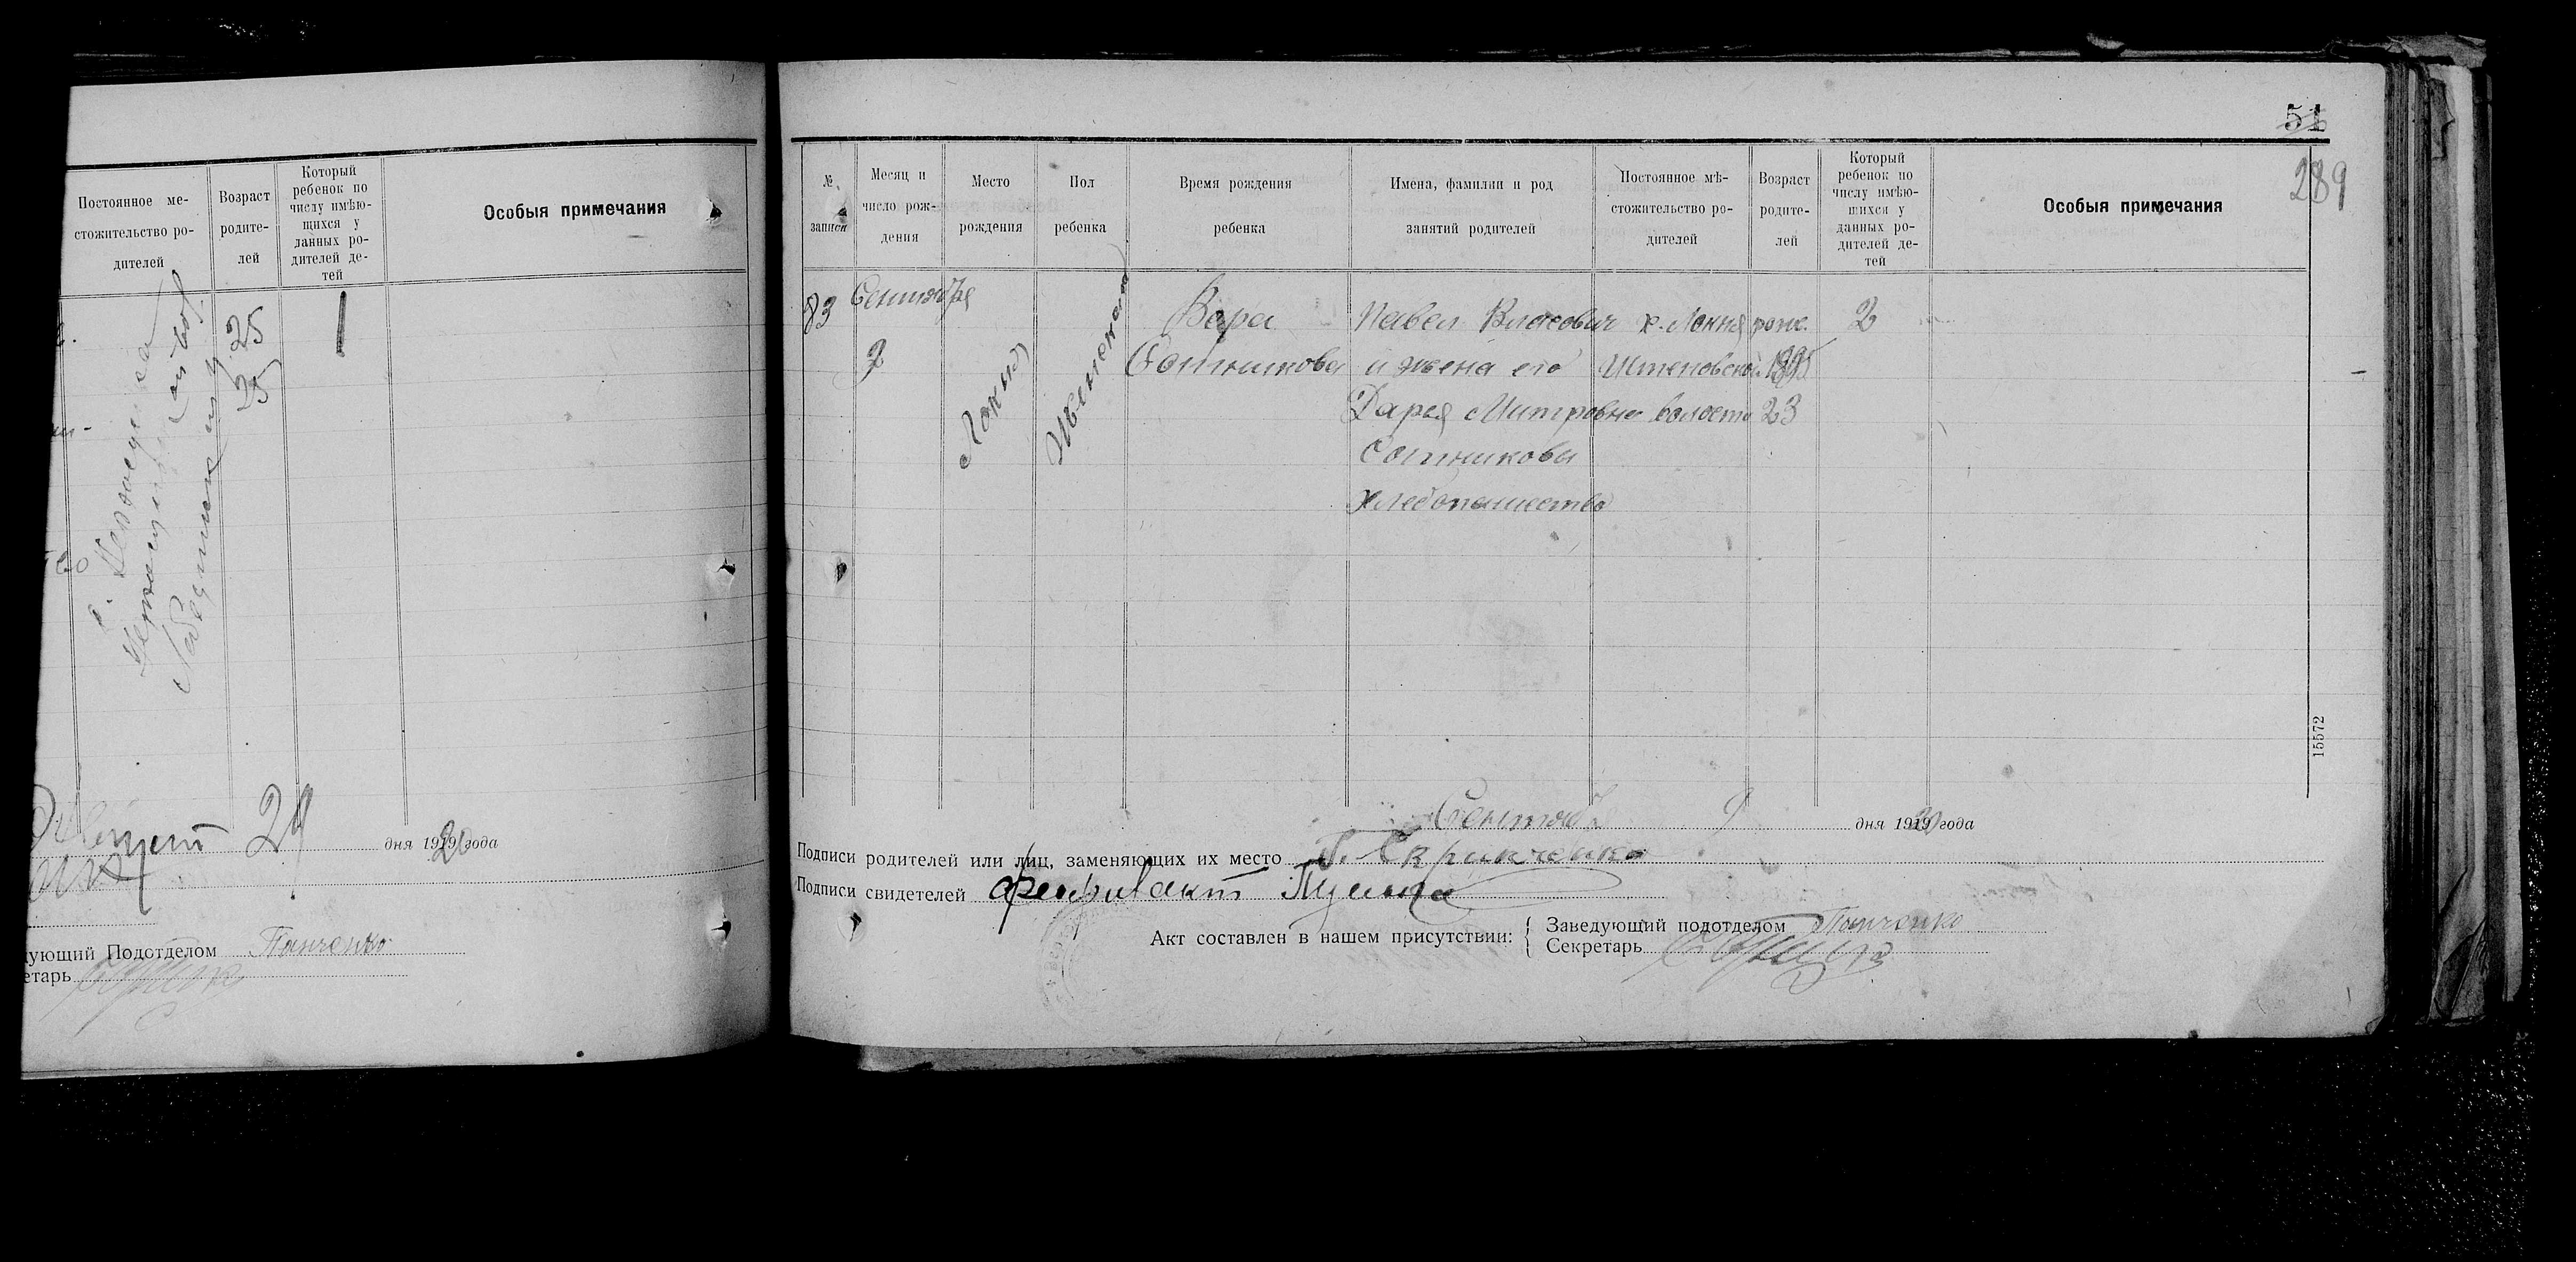 Постоянное ме-
стожительство ро-
дителей
Возраст
родите-
лей
Который
ребенок по
числу имѣю-
щихся у
данных ро-
дителей де-
тей
Особыя примечания
25
25
1
29 дня 1920 года
ующий Подотделом Панченко
етарь
51
289
№
записи
Месяц и
число рож-
дения
Место
рождения
Пол
ребенка
Время рождения
ребенка
Имена, фамилии и род
занятий родителей
Постоянное мѣ-
стожительство ро-
дителей
Возраст
родите-
лей
Который
ребенок по
числу имѣю-
щихся у
данных ро-
дителей де-
тей
Особыя примечания
83
Сентября
2
Локня
Женская
Вера
Сотникова
Павел Власович
и жена его
Дарья Митровна
Сотникова
хлебопашество
х. Локня
Штеповской
волости
рож.
1895
23
2
15572
Сентяб 9 дня 1920 года
Подписи родителей или лиц, заменяющих их место П. Скрипченко
Подписи свидетелей
Акт составлен в нашем присутствии:
Заведующий подотделом Панченко
Секретарь